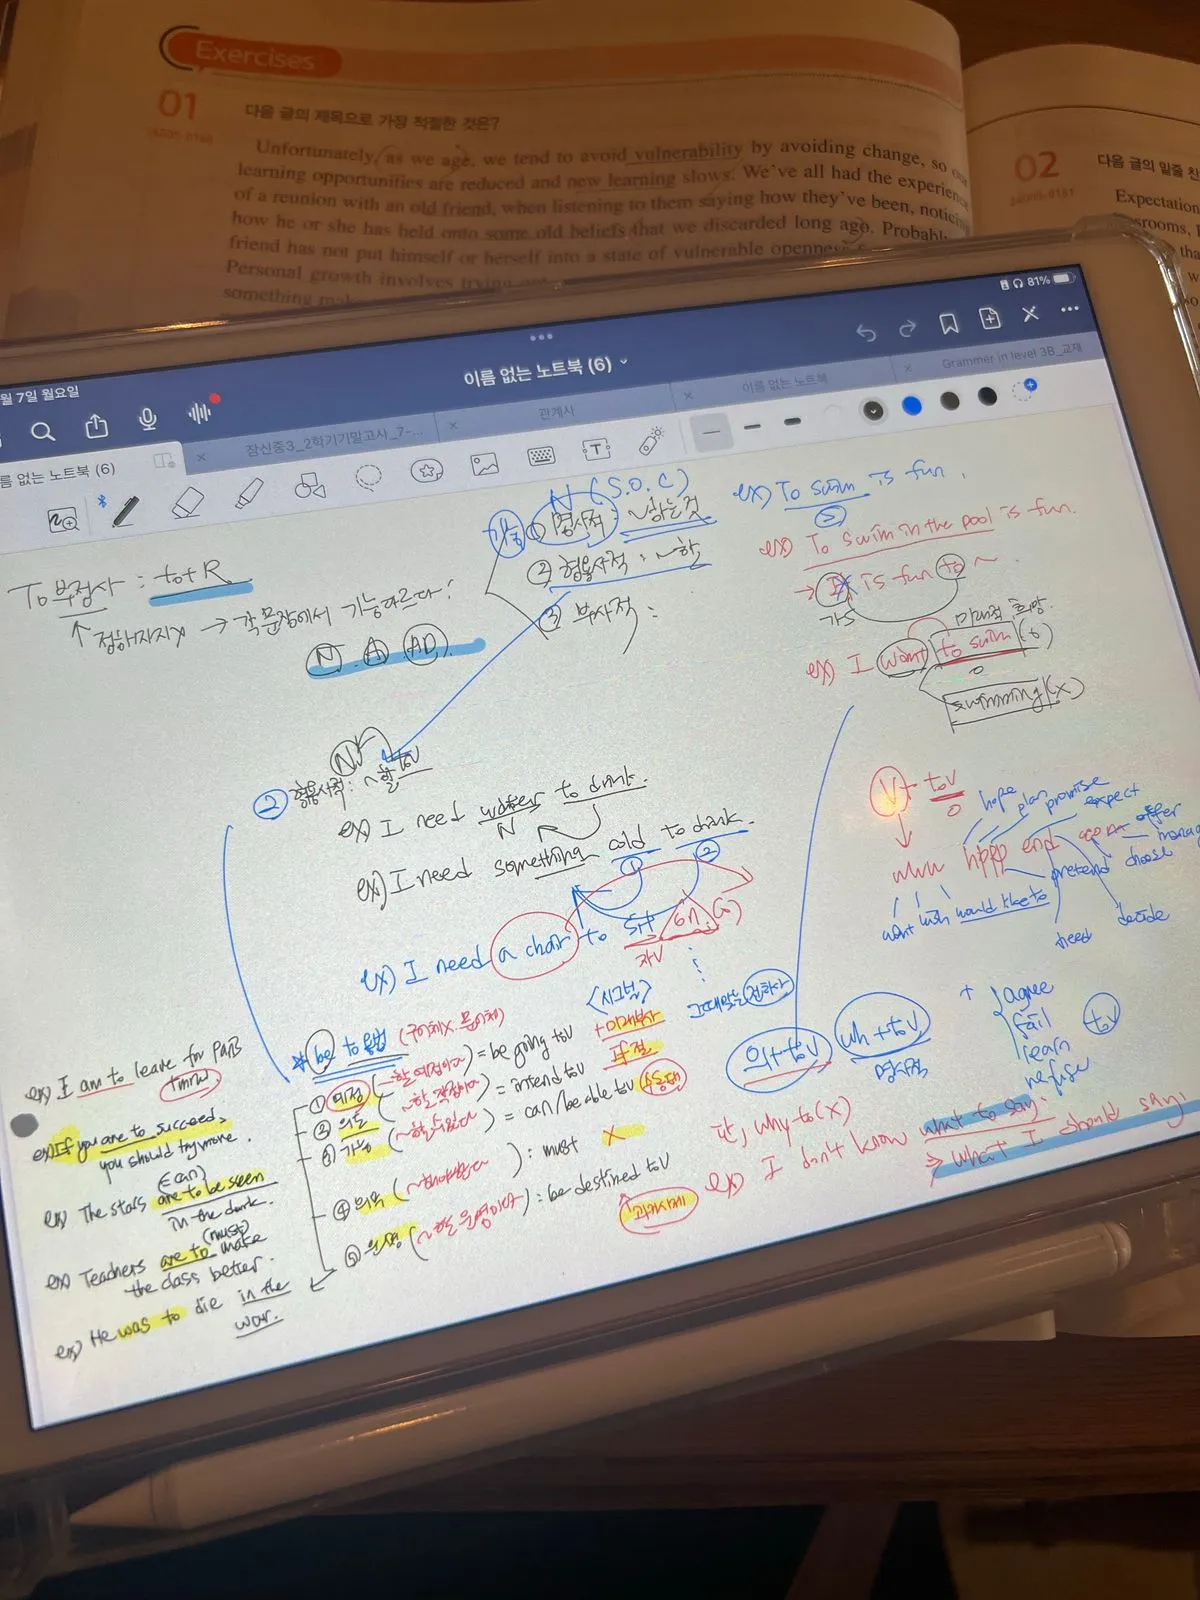 Exercises
01
다음 글의 제목으로 가장 적절한 것은?
Unfortunately, as we age, we tend to avoid vulnerability by avoiding change, so our
learning opportunities are reduced and new learning slows. We've all had the experience
of a reunion with an old friend, when listening to them saying how they've been, noticing
how he or she has held onto some old beliefs that we discarded long ago. Probabl
friend has not put himself or herself into a state of vulnerable openness
Personal growth involves trying
something
02
다음 글의 밑줄 친
Expectation
srooms,
81%
월 7일 월요일
이름 없는 노트북 (6)
이름 없는 노트북 (6)
잠신중3_2학기기말고사_7-...
관계사
이름 없는 노트북
Grammer in level 3B_교재
To부정사 : to+R
↑ 정해지지X → 각 문장에서 기능 다르다!
N. A. AD.
기능
N (S.O.C)
① 명사적 : ~하는 것
② 형용사적 : ~한
③ 부사적 :
ex) To swim is fun.
S
ex) To swim in the pool is fun.
→ It is fun to ~
가S
미래적 희망
ex) I want to swim (o)
o
swimming (x)
N
② 형용사적 : ~할 toV
ex) I need water to drink.
N
ex) I need something cold to drink.
① ②
ex) I need a chair to sit on. (x)
자V
그때 맞는 전치사
V + toV
o
hope
plan
promise
expect
offer
manage
www hppp end
pretend
choose
want wish would like to
need
decide
+ agree
fail
learn
refuse
toV
의+toV
wh+toV
명사적
단, why to (x)
ex) I don't know what to say.
→ what I should say.
* be to 용법 (구어체X. 문어체)
<시그널>
① 예정 (~할 예정이다) = be going toV
+미래부사
② 의도 (~할 작정이다) = intend toV
if절
③ 가능 (~할 수 있다) = can/be able toV
수동태
④ 의무 (~해야 한다) : must
X
⑤ 운명 (~할 운명이다) : be destined toV
과거시제
ex) I am to leave for PARIS
tmrw
ex) If you are to succeed,
you should try more.
(can)
ex) The stars are to be seen
in the dark.
(must)
ex) Teachers are to make
the class better.
ex) He was to die in the
war.